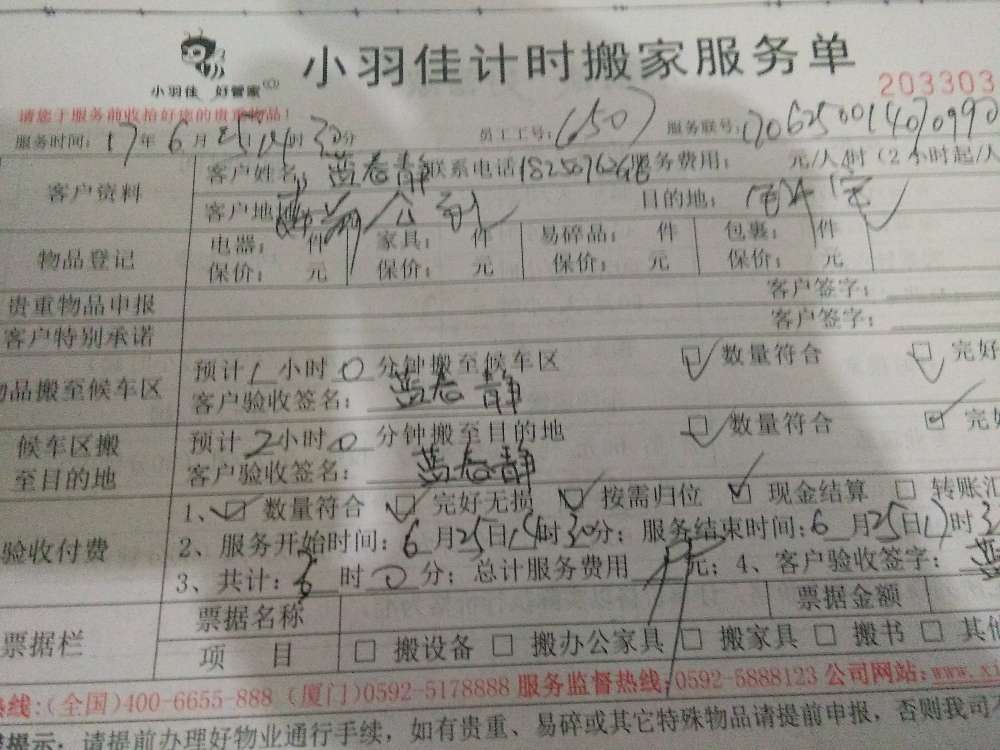 小羽佳 好管家
小羽佳计时搬家服务单
203303
请您于服务前收拾好您的贵重物品!
服务时间: 17年6月25日14时30分 员工工号: 1650 服务联号: 170625001470990
客户资料 客户姓名: 蓝春静 联系电话 服务费用: 元/人4时(2小时起/人
客户地 公司 目的地:
物品登记 电器: 件 家具: 件 易碎品: 件 包裹: 件
保价: 元 保价: 元 保价: 元 保价: 元
贵重物品申报 客户签字:
客户特别承诺 客户签字:
物品搬至候车区 预计1小时0分钟搬至候车区 数量符合 完好
客户验收签名: 蓝春静
候车区搬至目的地 预计2小时0分钟搬至目的地 数量符合 完好
客户验收签名: 蓝春静
验收付费 1、数量符合 完好无损 按需归位 现金结算 转账汇
2、服务开始时间: 6月25日14时30分; 服务结束时间: 6月25日17时3
3、共计: 时0分; 总计服务费用 元; 4、客户验收签字: 蓝
票据栏 票据名称 票据金额
项 目 搬设备 搬办公家具 搬家具 搬书 其他
热线:(全国)400-6655-888 (厦门)0592-5178888 服务监督热线:0592-5888123 公司网站:www.xi
提示: 请提前办理好物业通行手续, 如有贵重、易碎或其它特殊物品请提前申报, 否则我司